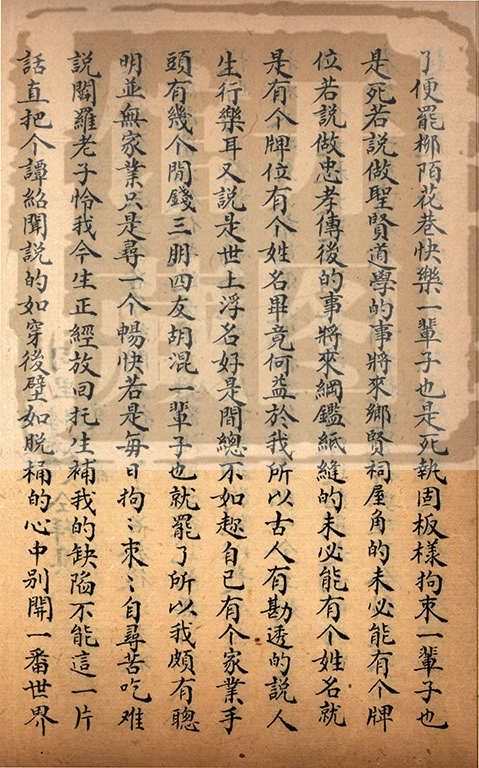 了便罷柳陌花巷快樂一輩子也是死執固板樣拘束一輩子也
是死若說做聖賢道學的事將來鄉賢祠屋角的未必能有个牌
位若說做忠孝傳後的事將來綱鑑紙縫的未必能有个姓名就
是有个牌位有个姓名畢竟何益於我所以古人有勘透的說人
生行樂耳又說是世上浮名好是閒總不如趁自已有个家業手
頭有幾个閒錢三朋四友胡混一輩子也就罷了所以我頗有聰
明並無家業只是尋一个暢快若是每日拘〻束〻自尋苦吃难
說閻羅老子怜我今生正經放回托生補我的缺陷不能這一片
話直把个譚紹聞說的如穿後壁如脫桶的心中別開一番世界